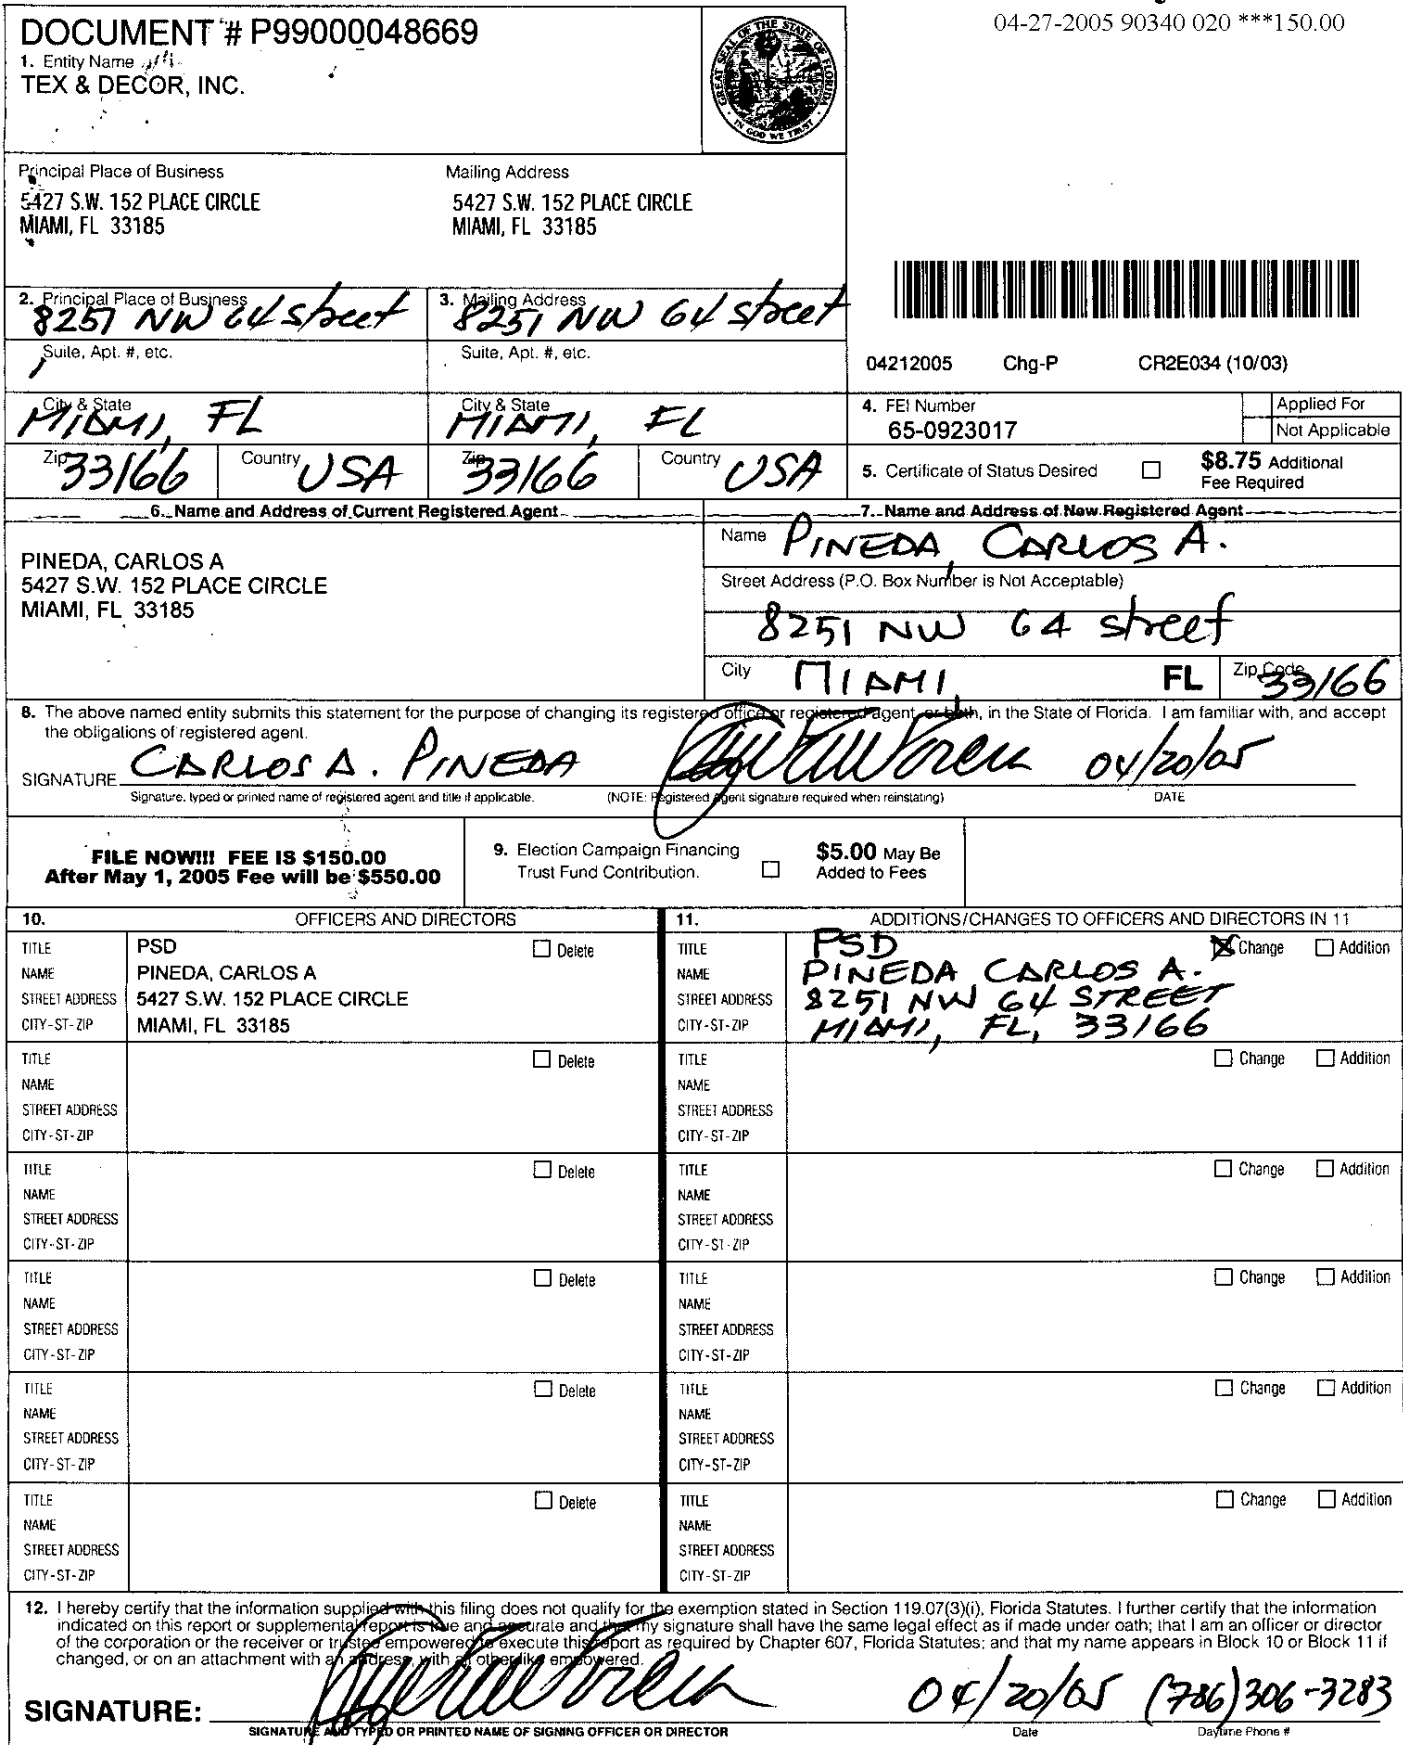 04-27-2005 90340 020 ***150.00
DOCUMENT # P99000048669
1. Entity Name
TEX & DECOR, INC.
GREAT SEAL OF THE STATE OF FLORIDA
IN GOD WE TRUST
Principal Place of Business
Mailing Address
5427 S.W. 152 PLACE CIRCLE
MIAMI, FL 33185
5427 S.W. 152 PLACE CIRCLE
MIAMI, FL 33185
2. Principal Place of Business
8251 NW 64 street
3. Mailing Address
8251 NW 64 street
Suite, Apt. #, etc.
Suite, Apt. #, etc.
04212005 Chg-P CR2E034 (10/03)
City & State
MIAMI, FL
City & State
MIAMI, FL
4. FEI Number
65-0923017
Applied For
Not Applicable
Zip 33166
Country USA
Zip 33166
Country USA
5. Certificate of Status Desired
$8.75 Additional
Fee Required
6. Name and Address of Current Registered Agent
7. Name and Address of New Registered Agent
PINEDA, CARLOS A
5427 S.W. 152 PLACE CIRCLE
MIAMI, FL 33185
Name PINEDA, CARLOS A.
Street Address (P.O. Box Number is Not Acceptable)
8251 NW 64 street
City MIAMI, FL Zip Code 33166
8. The above named entity submits this statement for the purpose of changing its registered office or registered agent, or both, in the State of Florida. I am familiar with, and accept
the obligations of registered agent.
SIGNATURE CARLOS A. PINEDA 04/20/05
Signature, typed or printed name of registered agent and title if applicable. (NOTE: Registered Agent signature required when reinstating) DATE
FILE NOW!!! FEE IS $150.00
After May 1, 2005 Fee will be $550.00
9. Election Campaign Financing
Trust Fund Contribution.
$5.00 May Be
Added to Fees
10. OFFICERS AND DIRECTORS
11. ADDITIONS/CHANGES TO OFFICERS AND DIRECTORS IN 11
TITLE PSD Delete
NAME PINEDA, CARLOS A
STREET ADDRESS 5427 S.W. 152 PLACE CIRCLE
CITY-ST-ZIP MIAMI, FL 33185
TITLE PSD Change Addition
NAME PINEDA CARLOS A.
STREET ADDRESS 8251 NW 64 STREET
CITY-ST-ZIP MIAMI, FL, 33166
TITLE Delete
NAME
STREET ADDRESS
CITY-ST-ZIP
TITLE Change Addition
NAME
STREET ADDRESS
CITY-ST-ZIP
TITLE Delete
NAME
STREET ADDRESS
CITY-ST-ZIP
TITLE Change Addition
NAME
STREET ADDRESS
CITY-ST-ZIP
TITLE Delete
NAME
STREET ADDRESS
CITY-ST-ZIP
TITLE Change Addition
NAME
STREET ADDRESS
CITY-ST-ZIP
TITLE Delete
NAME
STREET ADDRESS
CITY-ST-ZIP
TITLE Change Addition
NAME
STREET ADDRESS
CITY-ST-ZIP
TITLE Delete
NAME
STREET ADDRESS
CITY-ST-ZIP
TITLE Change Addition
NAME
STREET ADDRESS
CITY-ST-ZIP
12. I hereby certify that the information supplied with this filing does not qualify for the exemption stated in Section 119.07(3)(i), Florida Statutes. I further certify that the information
indicated on this report or supplemental report is true and accurate and that my signature shall have the same legal effect as if made under oath; that I am an officer or director
of the corporation or the receiver or trustee empowered to execute this report as required by Chapter 607, Florida Statutes; and that my name appears in Block 10 or Block 11 if
changed, or on an attachment with an address, with all other like empowered.
SIGNATURE: 04/20/05 (786)306-3283
SIGNATURE AND TYPED OR PRINTED NAME OF SIGNING OFFICER OR DIRECTOR Date Daytime Phone #